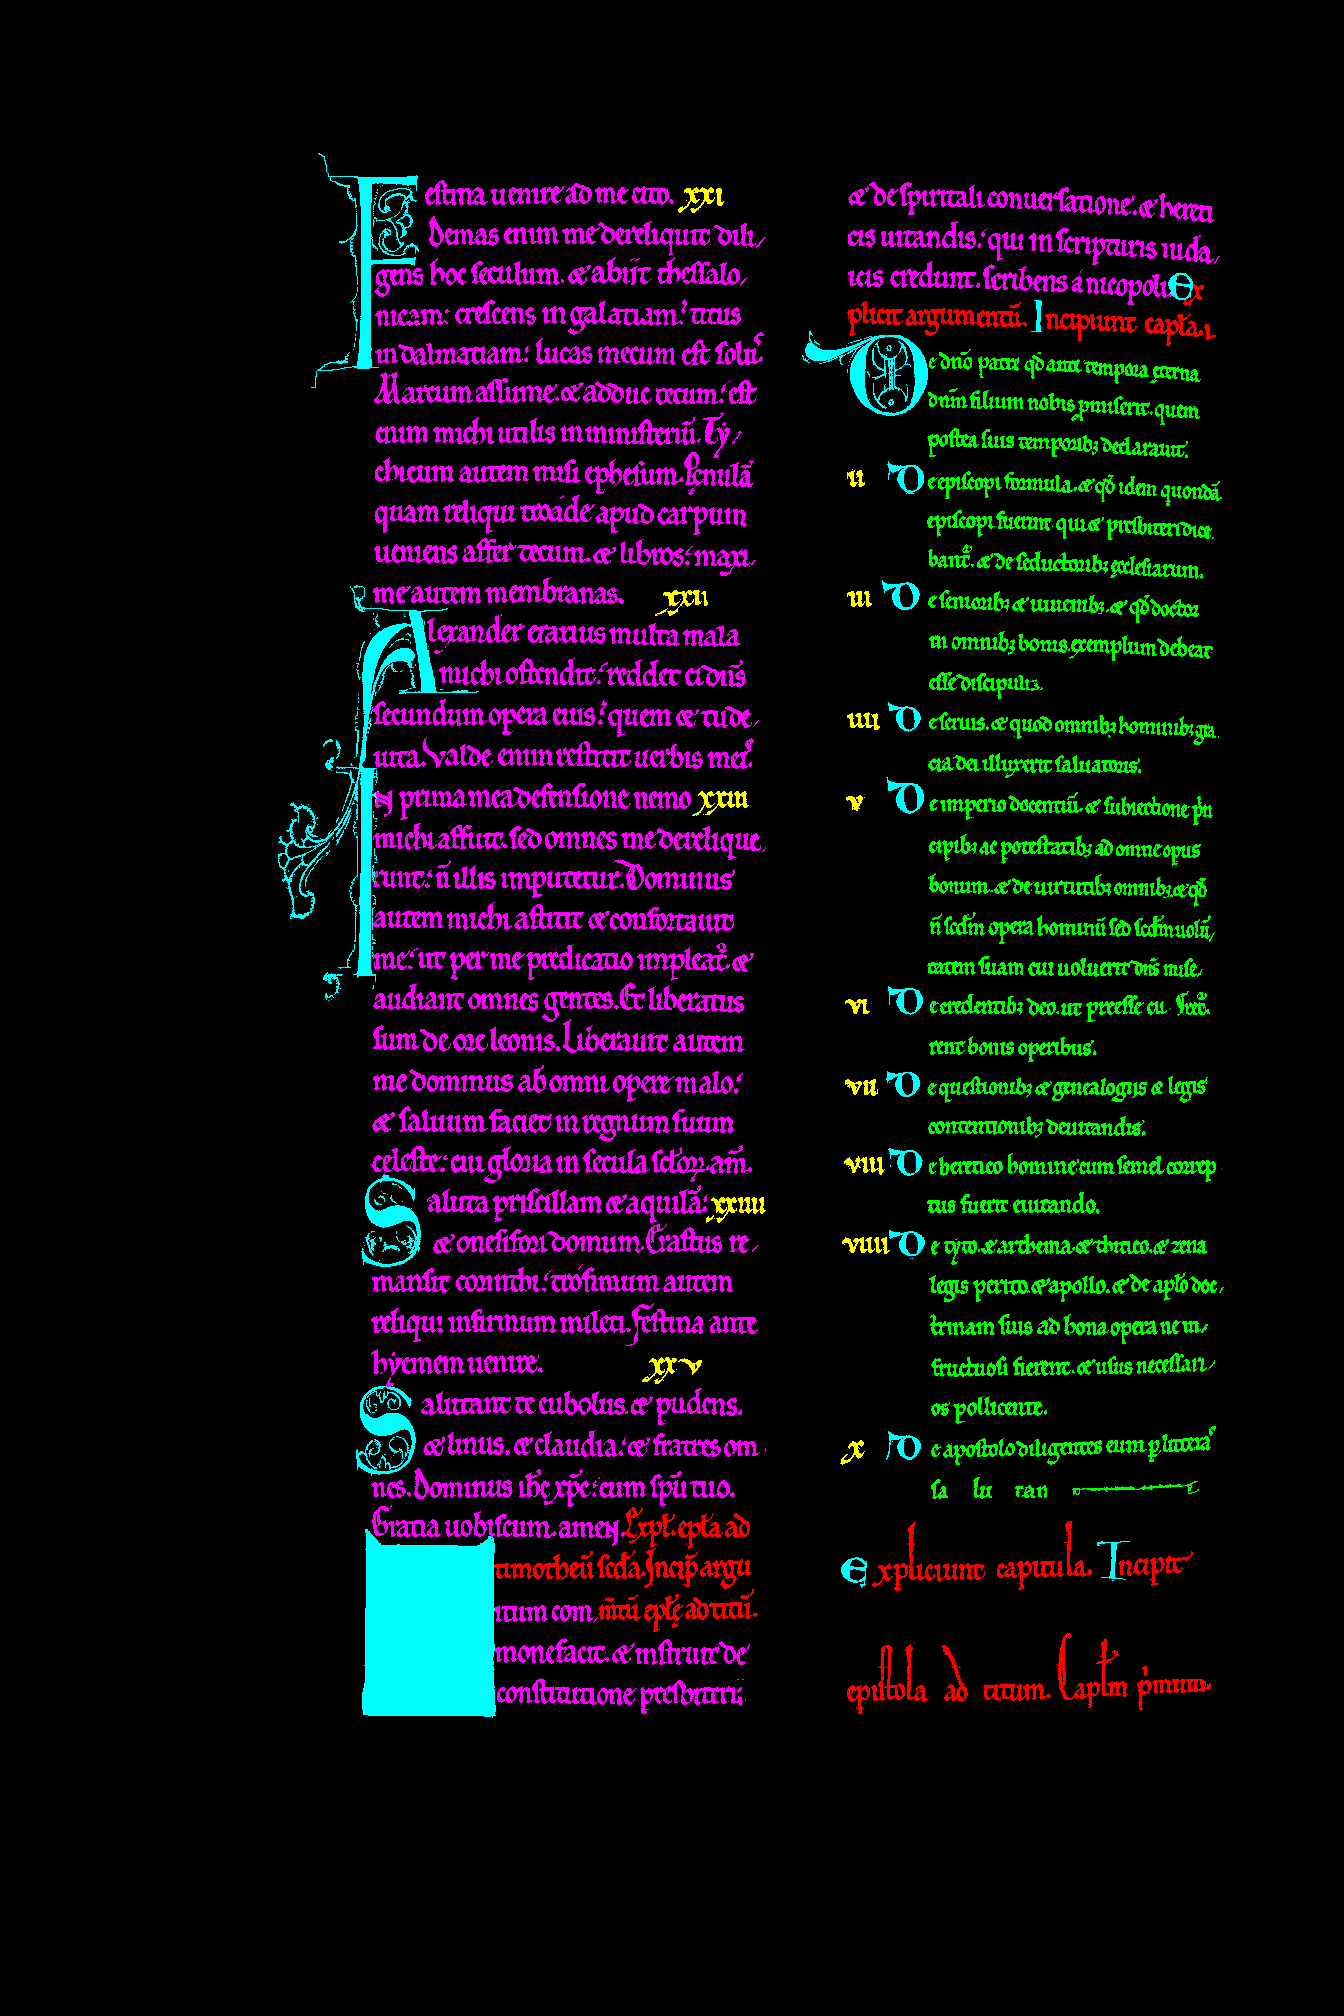 Festina uenire ad me cito. xxi
Demas enim me dereliquit dili/
gens hoc seculum. & abiit thessalo/
nicam: crescens in galatiam: titus
in dalmatiam: lucas mecum est solus.
Marcum assume. & adduc tecum: est
enim michi utilis in ministeriū. Ty/
chicum autem misi ephesum. Penulā
quam reliqui troade apud carpum
ueniens affer tecum. & libros: maxi/
me autem membranas. xxii
Alexander erarius multa mala
michi ostendit: reddet ei dn̄s
secundum opera eius: quem & tu de/
uita. Valde enim restitit uerbis meis.
IN prima mea defensione nemo xxiii
michi affuit. sed omnes me derelique/
runt: n̄ illis imputetur. Dominus
autem michi astitit & confortauit
me: ut per me predicatio impleat̄ &
audiant omnes gentes. Et liberatus
sum de ore leonis. Liberauit autem
me dominus ab omni opere malo:
& saluum faciet in regnum suum
celeste: cui gloria in secula sc̄loꝝ. am̄.
Saluta priscillam & aquilā: xxiiii
& onesifori domum. Erastus re/
mansit corinthi: trofimum autem
reliqui infirmum mileti. Festina ante
hyemem uenire. xxv
Salutant te eubolus. & pudens.
& linus. & claudia: & fratres om
nes. Dominus ih̄c xp̄c: cum sp̄u tuo.
Gratia uobiscum. amen. Expł. epła ad
timotheū scd̄a. Incip̄ argu
itum com/ m̄tū epłę ad titū.
monefacit. & instruit de
constitutione presbiterii
& de spiritali conuersatione. & hereti
cis uitandis: qui in scripturis iuda/
icis credunt. scribens a nicopoli. Ex
plicit argumentū. Incipiunt capła. i.
De dn̄o patre qđ ante tempora eterna
dn̄m filium nobis ꝓmiserit. quem
postea suis temporibꝫ declarauit.
ii De episcopi formula. & qđ idem quondā
episcopi fuerint qui & presbiteri dice
bant̄. & de seductoribꝫ ecclesiarum.
iii De senioribꝫ & iuuenibꝫ. & qđ doctor
in omnibꝫ bonis exemplum debeat
esse discipulis.
iiii De seruis. & quod omnibꝫ hominibꝫ gra
cia dei illuxerit saluatoris.
v De imperio docentiū. & subiectione prin
cipibꝫ ac potestatibꝫ ad omne opus
bonum. & de uirtutibꝫ omnibꝫ & qđ
n̄ scđm opera hominū sed scđm uolū/
tatem suam cui uoluerit dn̄s mise/
vi De credentibꝫ deo. ut preesse cu
rent bonis operibus.
vii De questionibꝫ & genealogiis & legis
contentionibꝫ deuitandis.
viii De heretico homine cum semel correp
tus fuerit euitando.
viiii De tyto. & arthema. & thitico. & zena
legis perito. & apollo. & de apło doc/
trinam suis ad bona opera ne in/
fructuosi fierent. & usus necessari/
os pollicente.
x De apostolo diligentes eum ꝑ litteras
sa lu tan
Expliciunt capitula. Incipit
epistola ad titum. Capłm p̄mum.